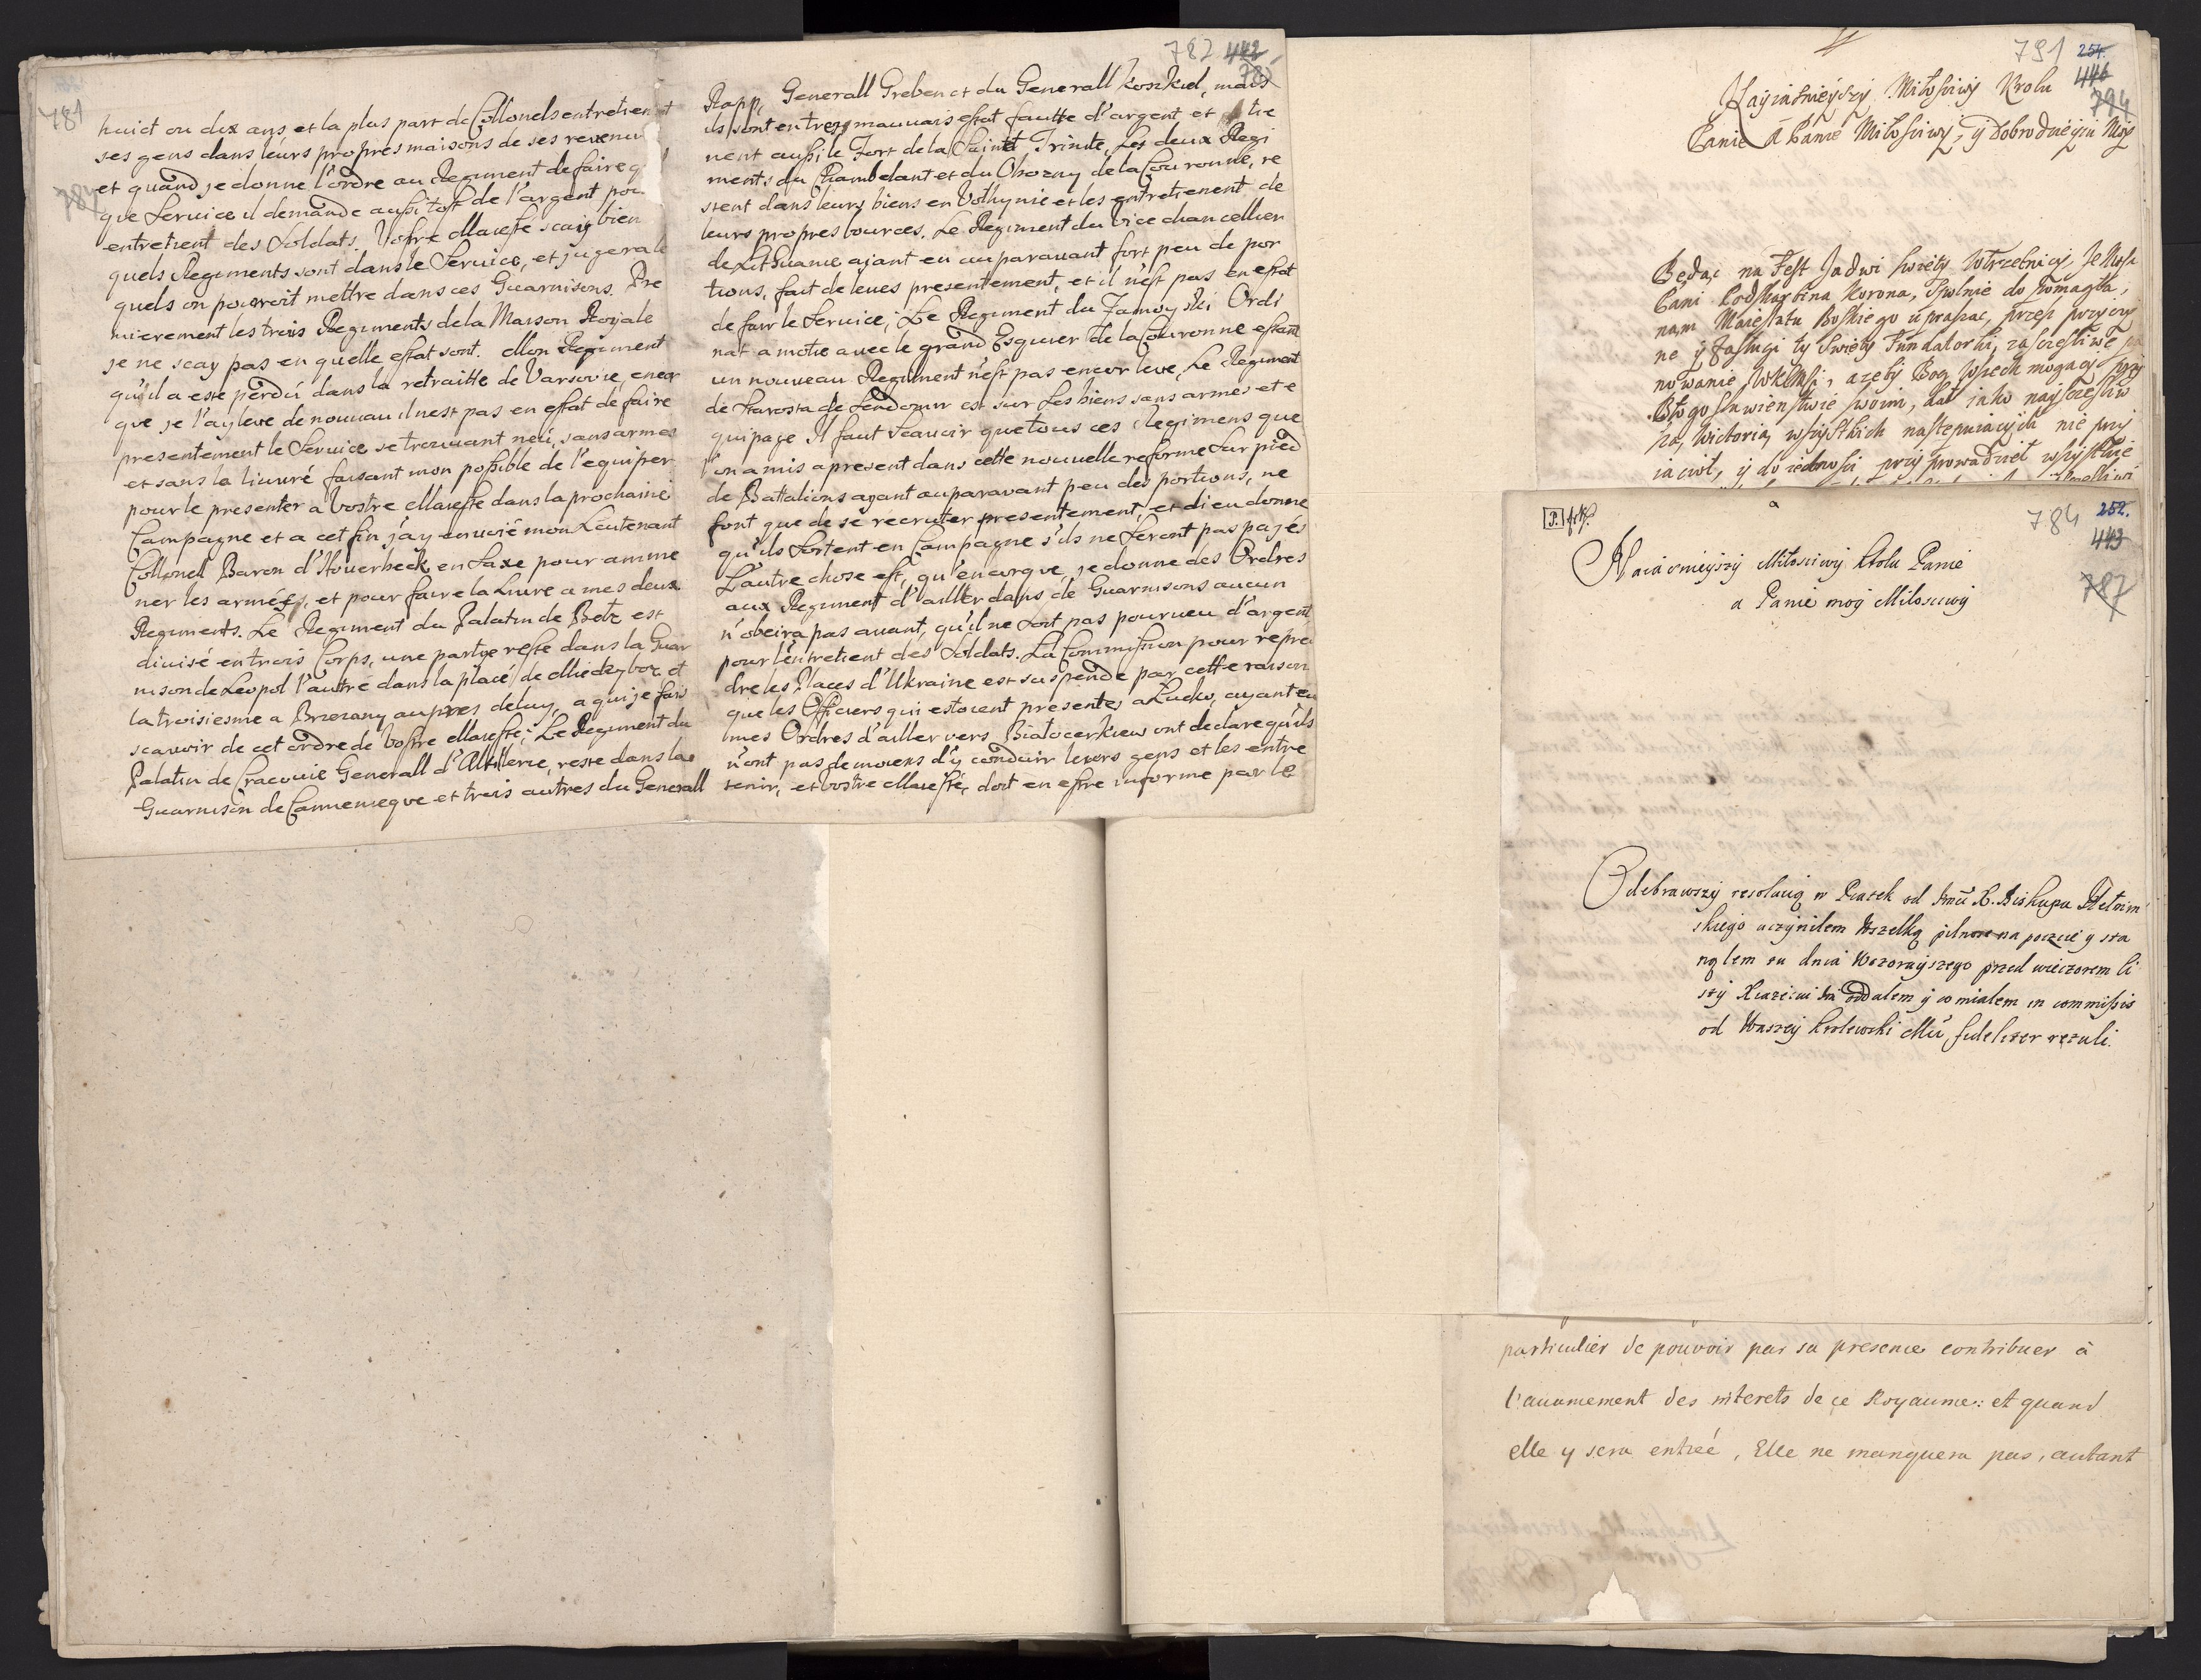 781
787
huict ou dix ans, et la plus part de Collonels entretien t
ses gens dans leurs propres maisons de ses revenu
et quand je donne l'ordre au Regiment de faire q
que Service il demande aussi tost de l'argent pou
entretient des Soldats. Vostre Maieste scait bien
quels Regiments sont dans le Service, et jugera le
quels on pourroit mettre dans ces Guarnisons. Pre
mierement les trois Regiments de la Maison Roijale
je ne scay pas en quelle estat sont. Mon Regiment
qu'il a este perdu dans la retraitte de Varsovie, encor
que je l'ay leve de nouveau il n'est pas en estat de faire
presentement le Service se trouvant neu, sans armes
et sans la livuré faisant mon possible de l'equiper
pour le presenter a Vostre Maieste dans la prochaine
Campagne et a cet fin j'ay envoié mon Leutenant
Collonel Baron d'Hoverbeck en Saxe pour amme
ner les armées, et pour faire la Livre a mes deux
Regiments. Le Regiment du Palatin de Beltz est
divisé en trois Corps, une partye reste dans la Guar
nison de Leopol l'autre dans la place de Miedzyboz et
la troisiesme a Brzezany aupres de luy, a qui je fais
scavoir de cet ordre de Vostre Maieste; Le Regiment du
Palatin de Cracovie Generall d'Altillerie, reste dans la
Guarnison de Cammenieque et trois autres du Generall
782 442
783
Rapp, Generall Greben et du Generall Koszkiel, mais
ils sont en tres mauvais estat fautte d'argent et tie
nent aussi le Fort de la Sainte Trinite, Les deux Regi
ments du Chambelant et du Obozny de la Couronne, re
stent dans leurs biens en Volhynie et les entretienent de
leurs propres bources. Le Regiment du Vice chancellier
de Lithuanie ajant eu auparavant fort peu de por
tions, fait de leues presentement, et il n'est pas en estat
de faire le Service; Le Regiment du Zamoyski Ordi
nat a motie avec le grand Esquier de la Couronne estant
un nouveau Regiment n'est pas encor leve, Le Regiment
de Starosta de Sendomir est sur Les biens sans armes et e
quipage Il faut Scavoir que tous ces Regimens que
l'on a mis a present dans cette nouvelle reforme Sur pied
de Battalions ayant auparavant peu des portions, ne
font que de se recruter presentement, et dieu donne
qu'ils Sortent en Campagne s'ils ne Seront pas pajés
L'autre chose est, qu'encor que je donne des Ordres
aux Regiment d'aller dans de Guarnisons aucun
n'obeira pas avant, qu'il ne Soit pas pourveu d'argent
pour l'entretient des Soldats. La Commission pour repre
dre les Places d'Ukraine est suspende par cette raison
que les Officiers qui estoient presentes a Lucko, ayant eu
mes Ordres d'aller vers Bialocerkiew ont declare qu'ils
n'ont pas de moiens d'y conduir leurs gens et les entre
tenir, et Vostre Maiesté, doit en estre informe par le
791 254.
446
794
Nayiaśnieyszy Miłościwy Krolu
Panie A Panie Miłościwy, y Dobrodzieyu Moy
Będąc na Fest Jadwi Swięty Wtrzebnicy, Je Mosc
Pani Podskarbina Korona, Spolnie do pomagta,
nam Maiestatu Boskiego upraszac, przez przyczy
ne y Zaslugi ty Swięty Fundatorki, zaszczesliwe pa
nowanie WKMsci, azeby Bog wszech mogący przy
Błogosławienstwie swoim, dał iako nayszczesliw
szą, Wictorią wszystkich następuiacych nie przy
iacioł, y do iednosci przyprowadził wszystkie
P.
784 252.
443
787
Naiasnieyszy Milosciwy Krolu Panie
a Panie moy Milosciwy
Odebrawszy resolucią w Piatek od Jmci X. Biskupa
skiego uczyniłem Wszelką pilnosc na poczcie y sta
nąłem tu dnia Wczorayszego przed wieczorem li
sty Xiazeciu Jmci oddalem y co mialem in commissis
od Waszey Krolewski Mci, fideliter retuli.
particulier de pouvoir par sa presence contribuer à
l'avancement des interets de ce Royaume: et quand
elle y sera entrée, Elle ne manquera pas, autant